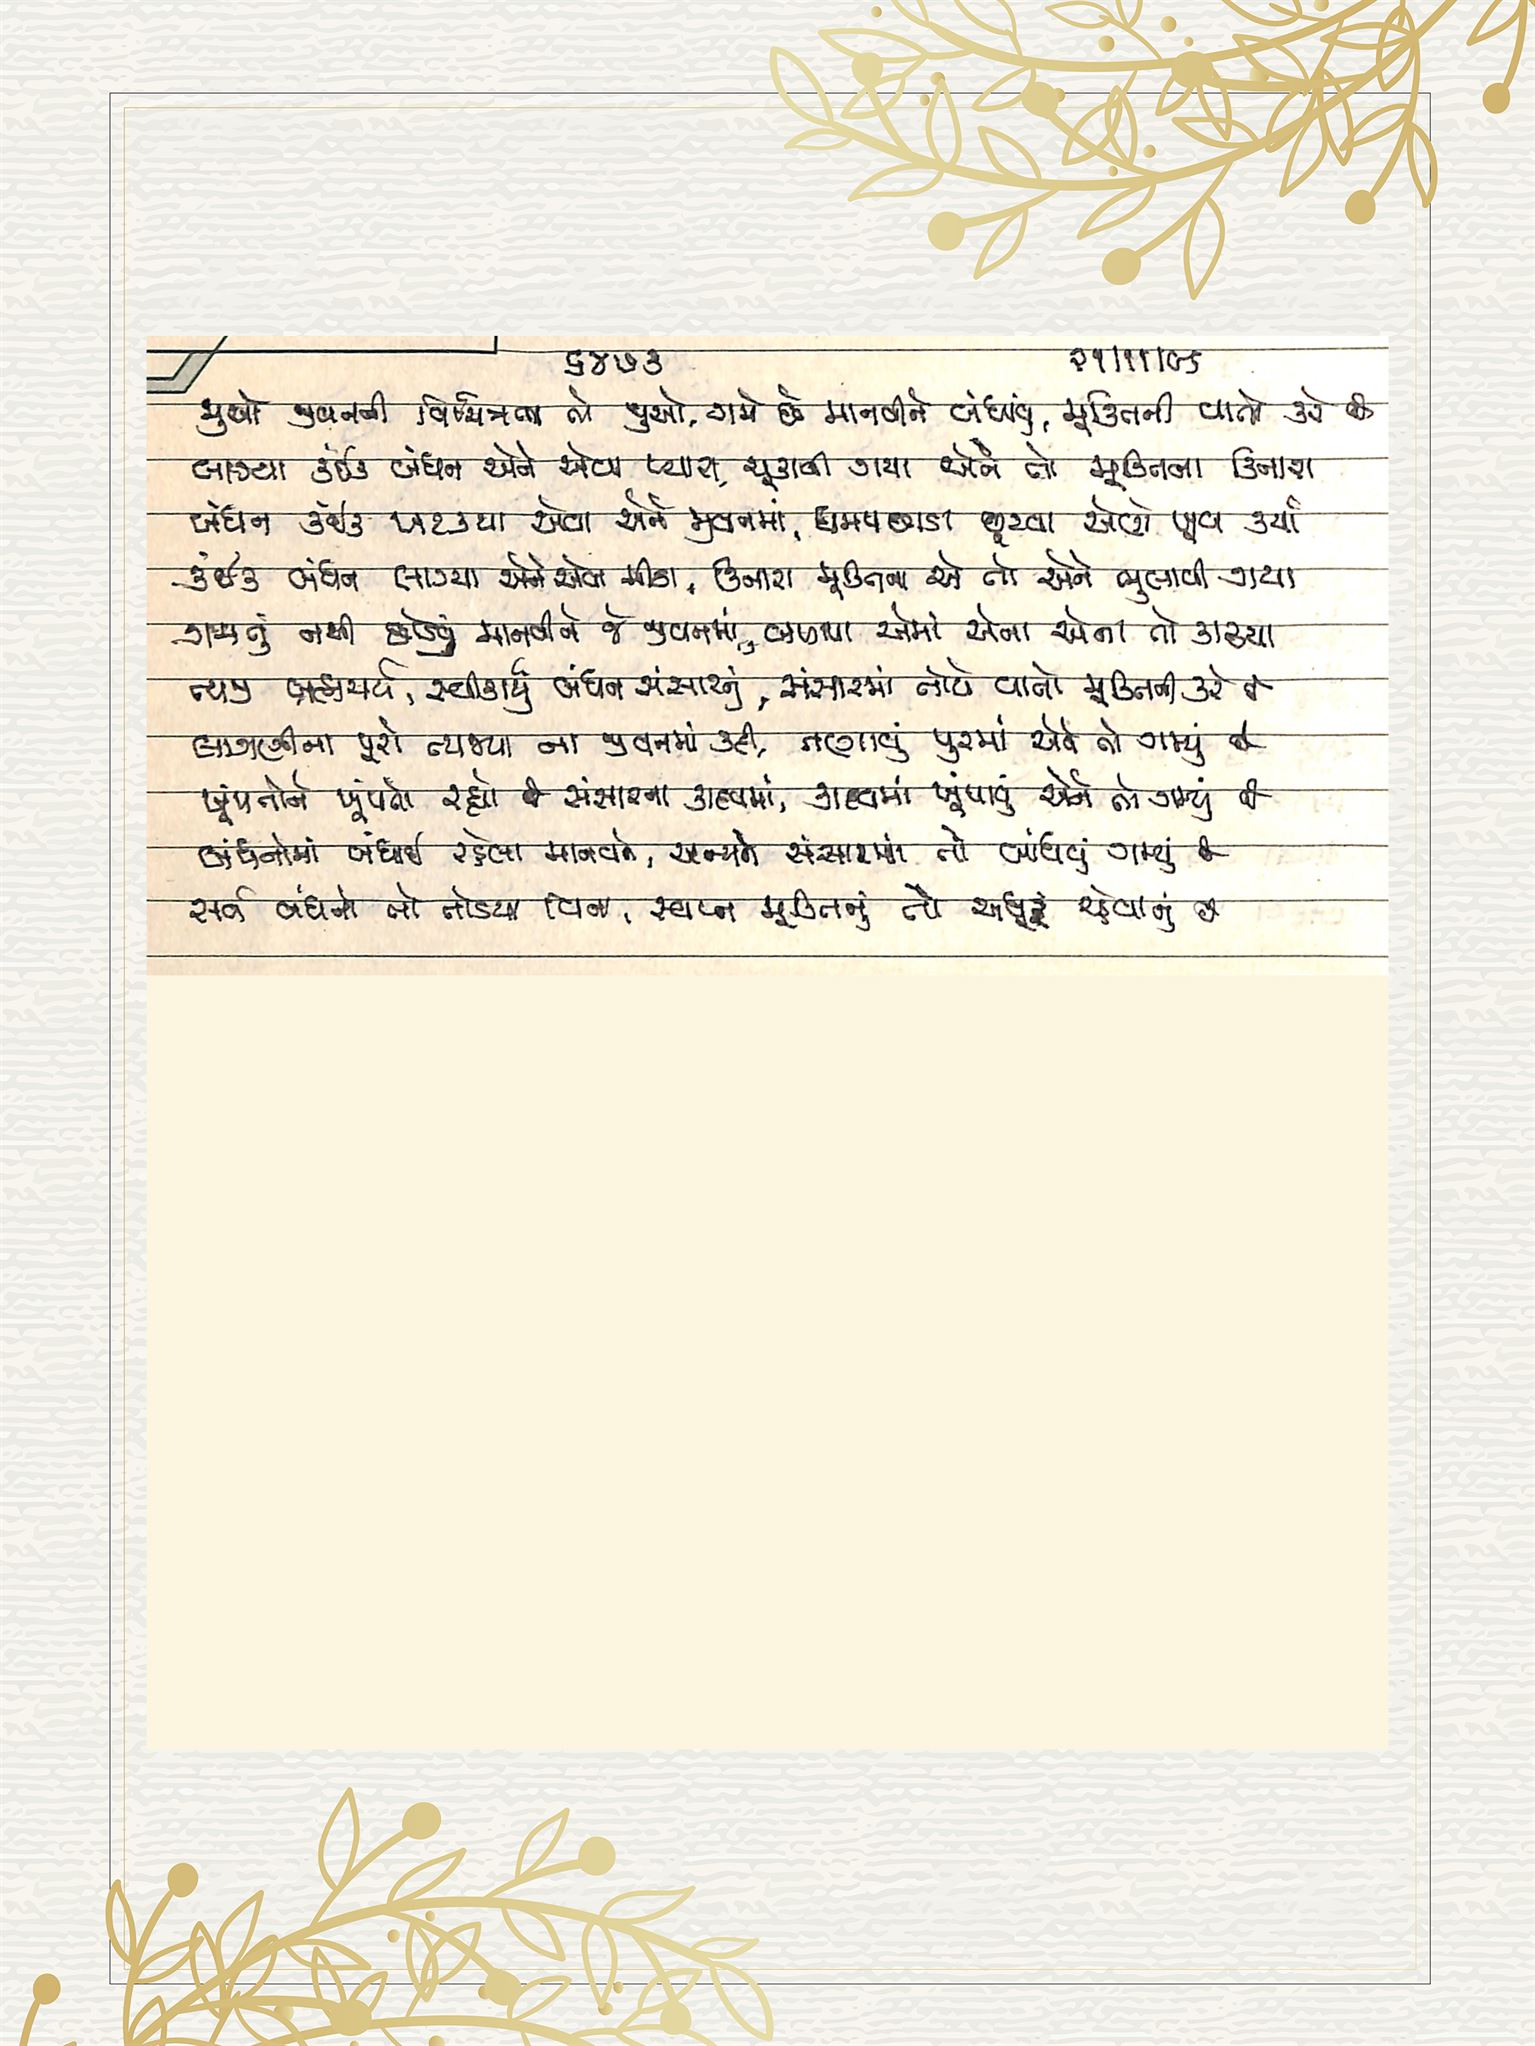 ૬૪૭૩ ૨૧/૧૧/૯૬
જુઓ જીવનની વિચિત્રતા તો જુઓ, ગમે છે માનવીને બંધાવું, મુક્તિની વાતો કરે છે
લાગ્યા કંઈક બંધન એને એવા પ્યારા, ચૂકાવી ગયા એને તો મુક્તિના કિનારા
બંધન કંઈક ખટક્યા એવા એને જીવનમાં, ધમપછાડા છૂટવા એણે ખૂબ કર્યા
કંઈક બંધન લાગ્યા એને એવા મીઠા, કિનારા મુક્તિના એ તો એને ભુલાવી ગયા
ગમ્યું નથી છોડવું માનવીને જે જીવનમાં, બંધાયા એમાં એના એ તો
ત્યજી બ્રહ્મચર્ય, સ્વીકાર્યું બંધન સંસારનું, સંસારમાં તોયે વાતો મુક્તિની કરે છે
લાગણીના પૂરો ત્યજ્યા ના જીવનમાં કદી, તણાવું પુરમાં એને તો ગમ્યું છે
ખૂંપતોને ખૂંપતો રહ્યો છે સંસારના કાદવમાં, કાદવમાં ખૂંપાવું એને તો ગમ્યું છે
બંધનોમાં બંધાઈ રહેલા માનવને, અન્યને સંસારમાં તો બાંધવું ગમ્યું છે
સર્વ બંધનો તો તોડયા વિના, સ્વપ્ન મુક્તિનું તો અધૂરું રહેવાનું છે